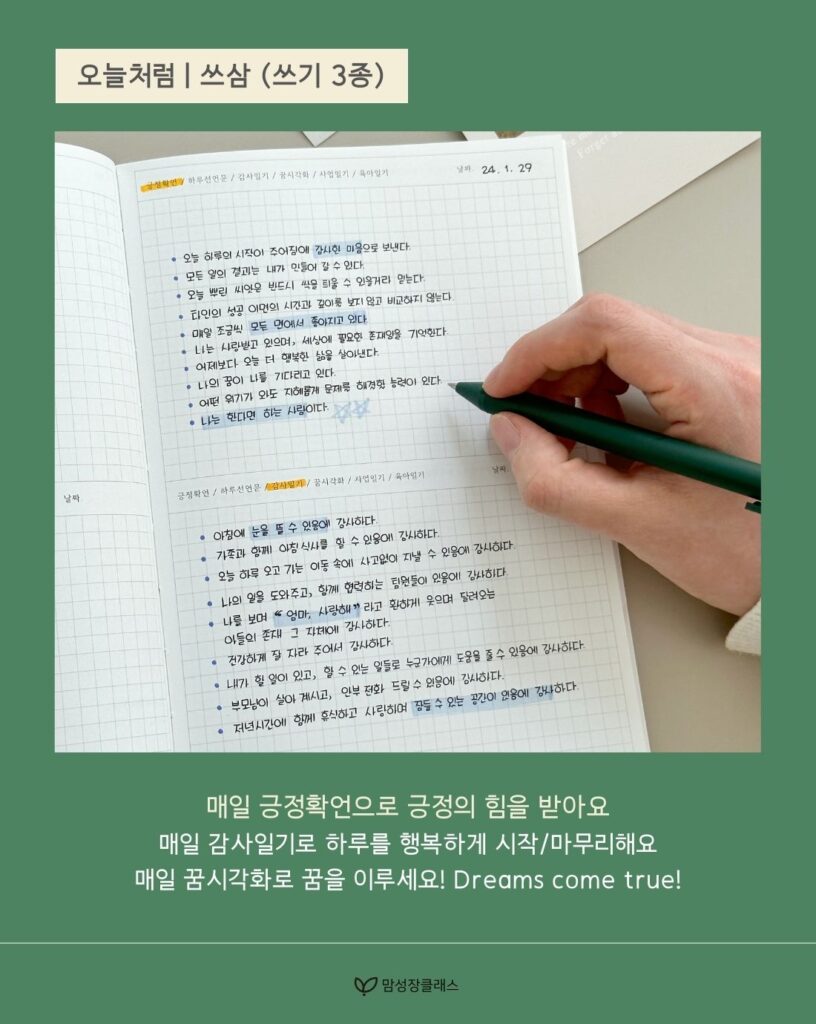 오늘처럼 | 쓰삼 (쓰기 3종)
Forget
긍정확언 / 하루선언문 / 감사일기 / 꿈시각화 / 사업일기 / 육아일기
날짜. 24. 1. 29
오늘 하루의 시작이 주어짐에 감사한 마음으로 보낸다.
모든 일의 결과는 내가 만들어 갈 수 있다.
오늘 뿌린 씨앗은 반드시 싹을 틔울 수 있을거라 믿는다.
타인의 성공 이면의 시간과 깊이를 보지 않고 비교하지 않는다.
매일 조금씩 모든 면에서 좋아지고 있다.
나는 사랑받고 있으며, 세상에 필요한 존재임을 기억한다.
어제보다 오늘 더 행복한 삶을 살아낸다.
나의 꿈이 나를 기다리고 있다.
어떤 위기가 와도 지혜롭게 문제를 해결할 능력이 있다.
나는 한다면 하는 사람이다.
날짜
긍정확언 / 하루선언문 / 감사일기 / 꿈시각화 / 사업일기 / 육아일기
날짜.
아침에 눈을 뜰 수 있음에 감사하다.
가족과 함께 아침 식사를 할 수 있음에 감사하다.
오늘 하루 오고 가는 이동 속에 사고없이 지낼 수 있음에 감사하다.
나의 일을 도와주고, 함께 협력하는 팀원들이 있음에 감사하다.
나를 보며 “엄마, 사랑해” 라고 환하게 웃으며 달려오는
아들의 존재 그 자체에 감사하다.
건강하게 잘 자라 주어서 감사하다.
내가 할 일이 있고, 할 수 있는 일들로 누군가에게 도움을 줄 수 있음에 감사하다.
부모님이 살아 계시고, 안부 전화 드릴 수 있음에 감사하다.
저녁시간에 함께 휴식하고 사랑하며 잠들 수 있는 공간이 있음에 감사하다.
매일 긍정확언으로 긍정의 힘을 받아요
매일 감사일기로 하루를 행복하게 시작/마무리해요
매일 꿈시각화로 꿈을 이루세요! Dreams come true!
맘성장클래스